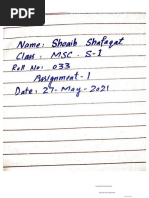 Name: Shoaib Shafaqat
Class: MSC. S-I
Roll No: 033
Assignment-1
Date: 27-May-2021